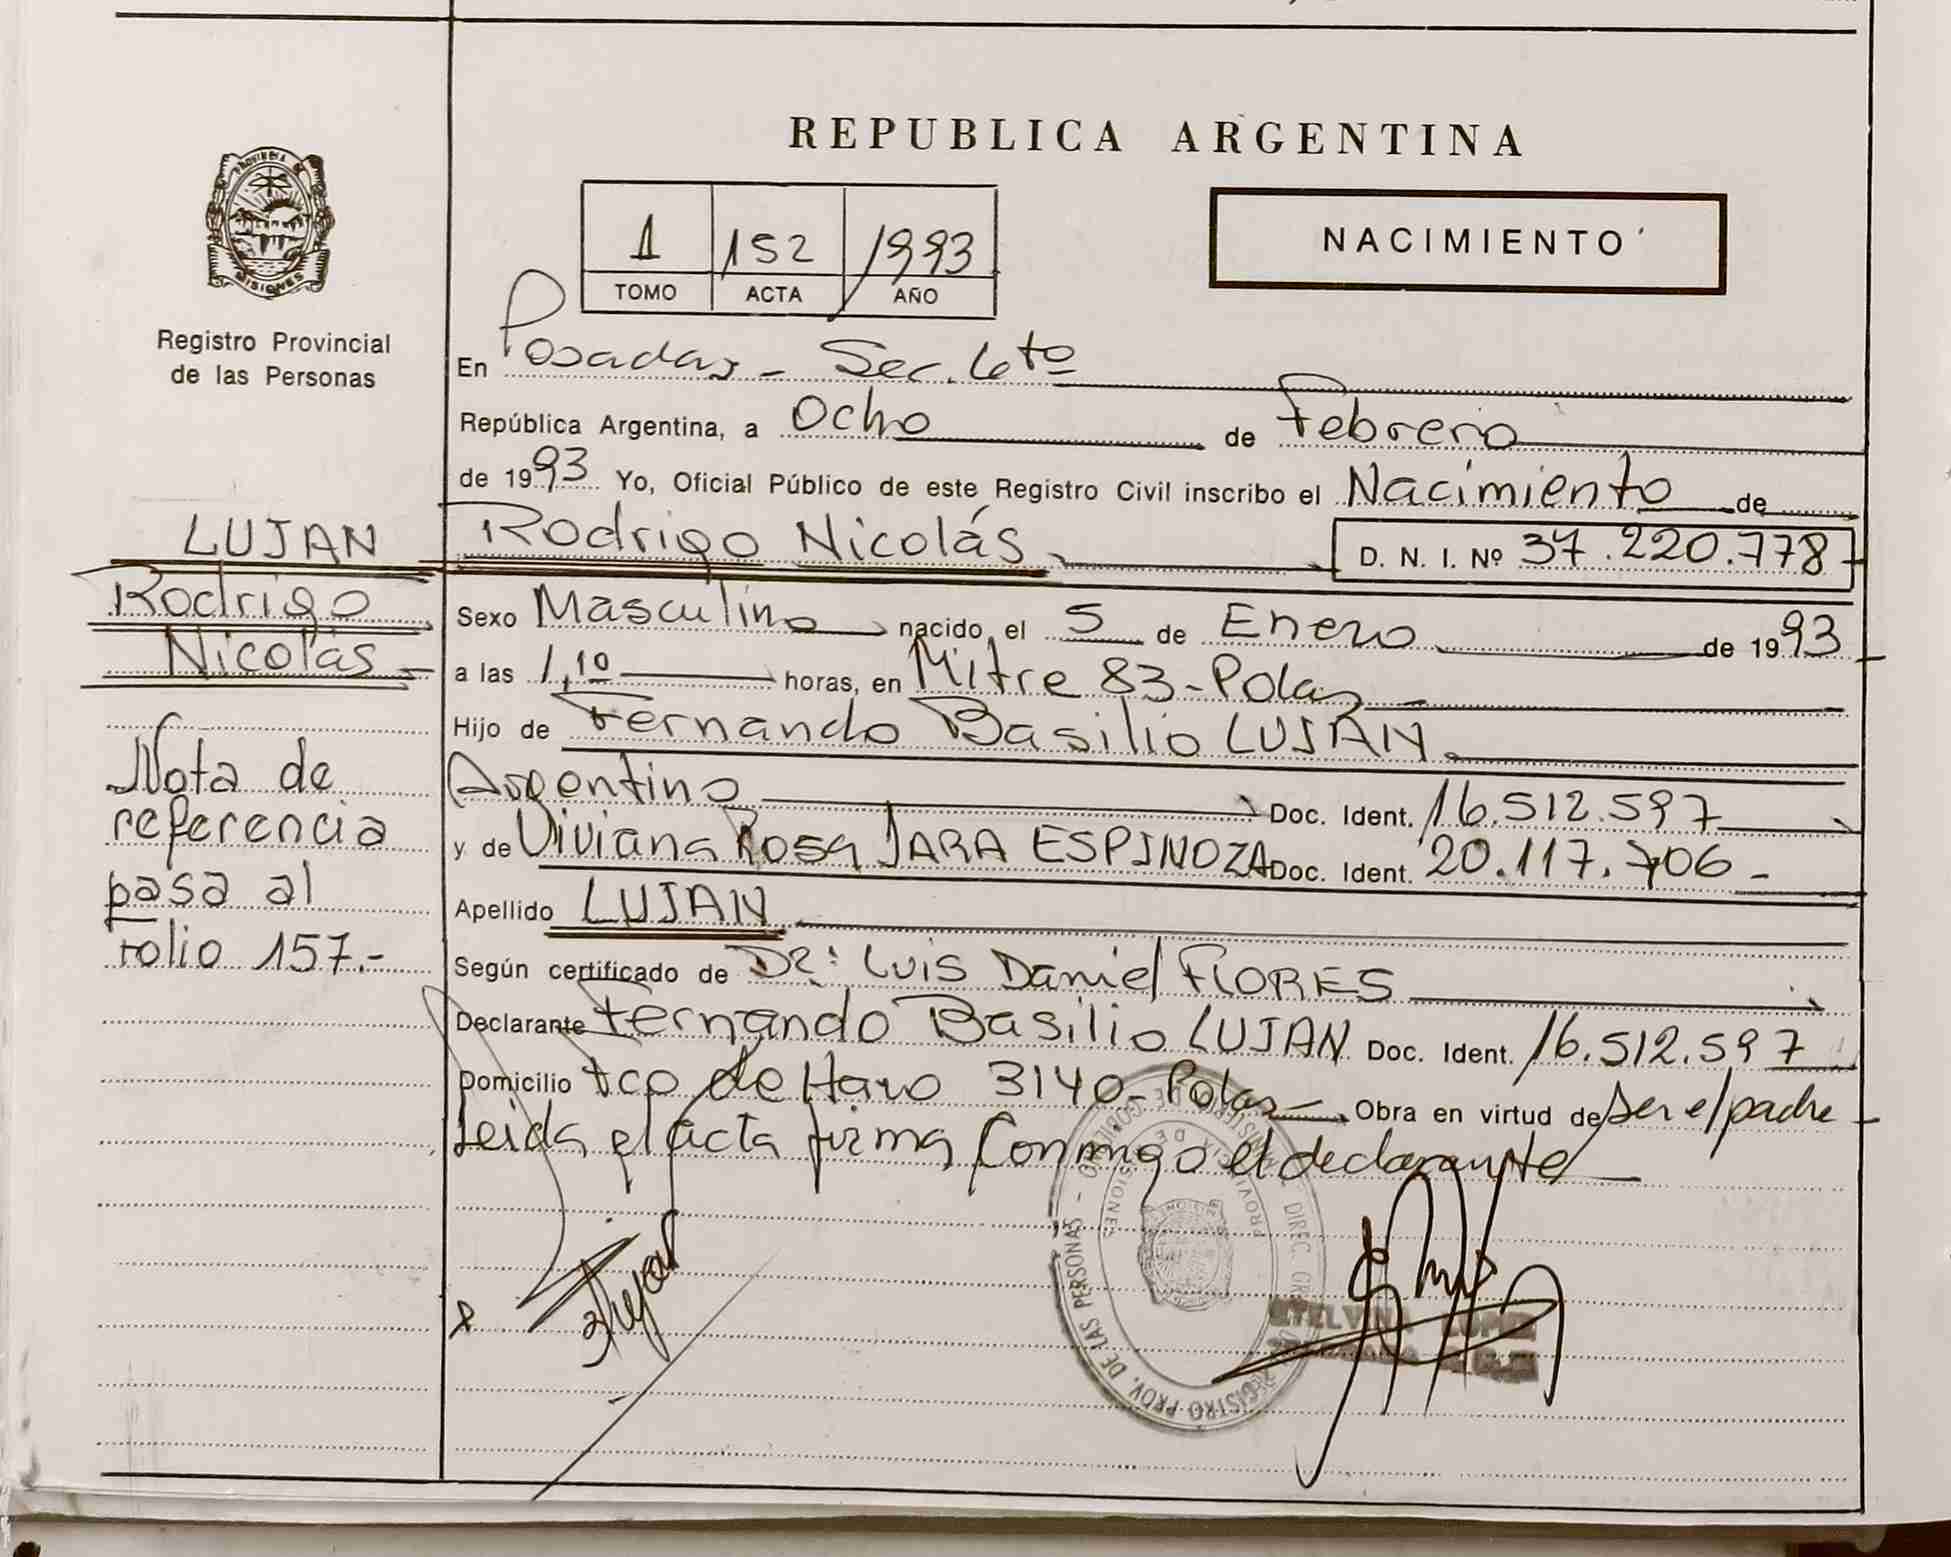 REPUBLICA ARGENTINA
PROVINCIA DE
MISIONES
Registro Provincial
de las Personas
1 152 1993
TOMO ACTA AÑO
NACIMIENTO
En Posadas - Sec. 6ta
República Argentina, a Ocho de Febrero
de 1993 Yo, Oficial Público de este Registro Civil inscribo el Nacimiento de
Rodrigo Nicolás D. N. I. Nº 37.220.778
Sexo Masculino nacido el 5 de Enero de 1993
a las 1,10 horas, en Mitre 83 - Pdas
Hijo de Fernando Basilio LUJAN
Argentino Doc. Ident. 16.512.597
y de Viviana Rosa JARA ESPINOZA Doc. Ident. 20.117.706 -
Apellido LUJAN
Según certificado de Dr: Luis Daniel FLORES
Declarante Fernando Basilio LUJAN Doc. Ident. 16.512.597
Domicilio Fco de Haro 3140 - Pdas Obra en virtud de ser el padre
Leida el acta firma Conmigo el declarante
LUJAN
Rodrigo
Nicolás -
Nota de
referencia
pasa al
folio 157.-
REGISTRO PROV. DE LAS PERSONAS
PROVINCIA DE MISIONES